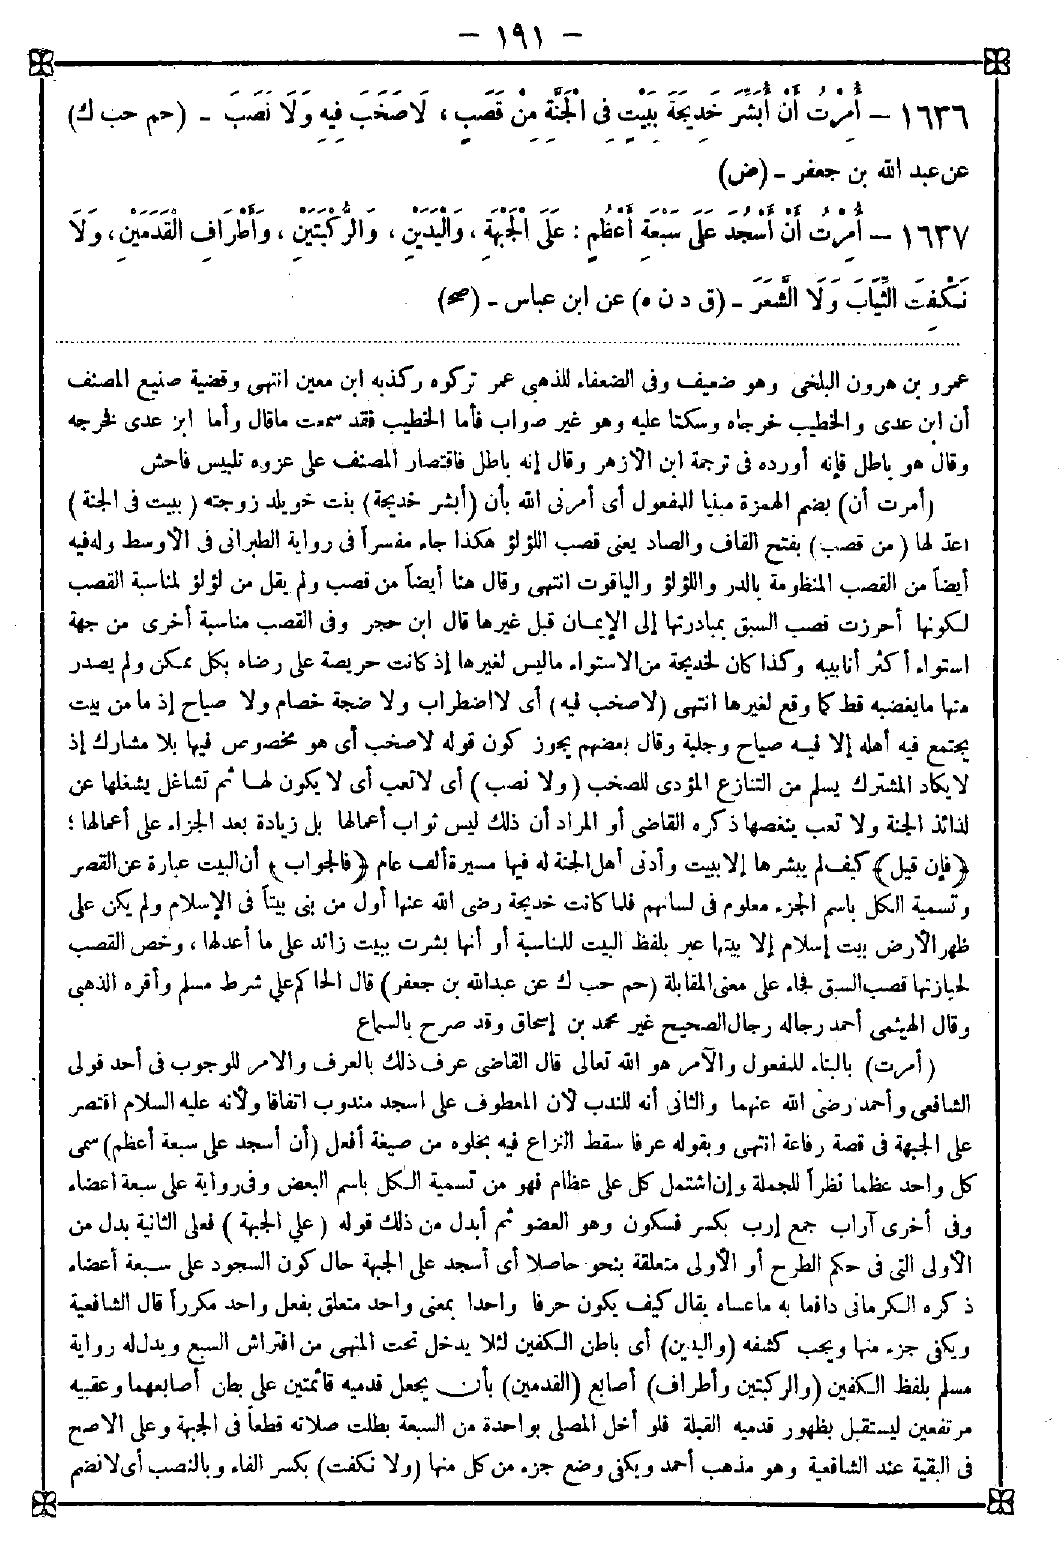 - ١٩١ -
١٦٣٦ - أُمِرْتُ أَنْ أُبَشِّرَ خَدِيجَةَ بِبَيْتٍ فِى الْجَنَّةِ مِنْ قَصَبٍ ، لَا صَخَبَ فِيهِ وَلَا نَصَبَ - (حم حب ك)
عن عبد الله بن جعفر - (ض)
١٦٣٧ - أُمِرْتُ أَنْ أَسْجُدَ عَلَى سَبْعَةِ أَعْظُمٍ : عَلَى الْجَبْهَةِ ، وَالْيَدَيْنِ ، وَالرُّكْبَتَيْنِ ، وَأَطْرَافِ الْقَدَمَيْنِ ، وَلَا
نَكْفِتَ الثِّيَابَ وَلَا الشَّعَرَ - (ق د ن ه) عن ابن عباس - (صح)
عمرو بن هرون البلخى وهو ضعيف وفى الضعفاء للذهبى عمر تركوه وكذبه ابن معين انتهى وقضية صنيع المصنف
أن ابن عدى والخطيب خرجاه وسكتا عليه وهو غير صواب فأما الخطيب فقد سمعت ماقال وأما ابن عدى فخرجه
وقال هو باطل فإنه أورده فى ترجمة ابن الأزهر وقال إنه باطل فاقتصار المصنف على عزوه تلبيس فاحش
(أمرت أن) بضم الهمزة مبنيا للمفعول أى أمرنى الله بأن (أبشر خديجة) بنت خويلد زوجته (ببيت فى الجنة)
اعتد لها (من قصب) بفتح القاف والصاد يعنى قصب اللؤلؤ هكذا جاء مفسراً فى رواية الطبرانى فى الأوسط وله فيه
أيضاً من القصب المنظومة بالدر واللؤلؤ والياقوت انتهى وقال هنا أيضاً من قصب ولم يقل من لؤلؤ لمناسبة القصب
لكونها أحرزت قصب السبق بمبادرتها إلى الإيمان قبل غيرها قال ابن حجر وفى القصب مناسبة أخرى من جهة
استواء أكثر أنابيبه وكذا كان لخديجة من الاستواء ماليس لغيرها إذ كانت حريصة على رضاه بكل ممكن ولم يصدر
منها مايغضبه قط كما وقع لغيرها انتهى (لا صخب فيه) أى لا اضطراب ولا ضجة خصام ولا صياح إذ ما من بيت
يجتمع فيه أهله إلا فيه صياح وجلبة وقال بعضهم يجوز كون قوله لاصخب أى هو مخصوص فيها بلا مشارك إذ
لا يكاد المشترك يسلم من التنازع المؤدى للصخب (ولا نصب) أى لاتعب أى لا يكون لها ثم تشاغل يشغلها عن
لذائذ الجنة ولا تعب ينغصها ذكره القاضى أو المراد أن ذلك ليس ثواب أعمالها بل زيادة بعد الجزاء على أعمالها ؛
﴿فإن قيل﴾ كيف لم يبشرها إلا ببيت وأدنى أهل الجنة له فيها مسيرة ألف عام ﴿فالجواب﴾ أن البيت عبارة عن القصر
وتسمية الكل باسم الجزء معلوم فى لسانهم فلما كانت خديجة رضى الله عنها أول من بنى بيتاً فى الإسلام ولم يكن على
ظهر الأرض بيت إسلام إلا بيتها عبر بلفظ البيت للمناسبة أو أنها بشرت ببيت زائد على ما أعد لها ، وخص القصب
لحيازتها قصب السبق فجاء على معنى المقابلة (حم حب ك عن عبدالله بن جعفر) قال الحاكم على شرط مسلم وأقره الذهبى
وقال الهيثمى أحمد رجاله رجال الصحيح غير محمد بن إسحاق وقد صرح بالسماع
(أمرت) بالبناء للمفعول والآمر هو الله تعالى قال القاضى عرف ذلك بالعرف والامر للوجوب فى أحد قولى
الشافعى وأحمد رضى الله عنهما والثانى أنه للندب لأن المعطوف على اسجد مندوب اتفاقا ولأنه عليه السلام اقتصر
على الجبهة فى قصة رفاعة انتهى وبقوله عرفا سقط النزاع فيه بخلوه من صيغة أفعل (أن أسجد على سبعة أعظم) سمى
كل واحد عظما نظراً للجملة وإن اشتمل كل على عظام فهو من تسمية الكل باسم البعض وفى رواية على سبعة اعضاء
وفى أخرى آراب جمع إرب بكسر فسكون وهو العضو ثم أبدل من ذلك قوله (على الجبهة) فعلى الثانية بدل من
الأولى التى فى حكم الطرح أو الأولى متعلقة بنحو حاصلا أى أسجد على الجبهة حال كون السجود على سبعة أعضاء
ذكره الكرمانى دافعا به ماعساه يقال كيف يكون حرفا واحدا بمعنى واحد متعلق بفعل واحد مكرراً قال الشافعية
ويكفى جزء منها ويجب كشفه (واليدين) أى باطن الكفين لئلا يدخل تحت المنهى من افتراش السبع ويدل له رواية
مسلم بلفظ الكفين (والركبتين وأطراف) أصابع (القدمين) بأن يجعل قدميه قائمتين على بطن أصابعهما وعقبيه
مرتفعين ليستقبل بظهور قدميه القبلة فلو أخل المصلى بواحدة من السبعة بطلت صلاته قطعاً فى الجبهة وعلى الاصح
فى البقية عند الشافعية وهو مذهب أحمد ويكفى وضع جزء من كل منها (ولا نكفت) بكسر الفاء وبالنصب أى لانضم